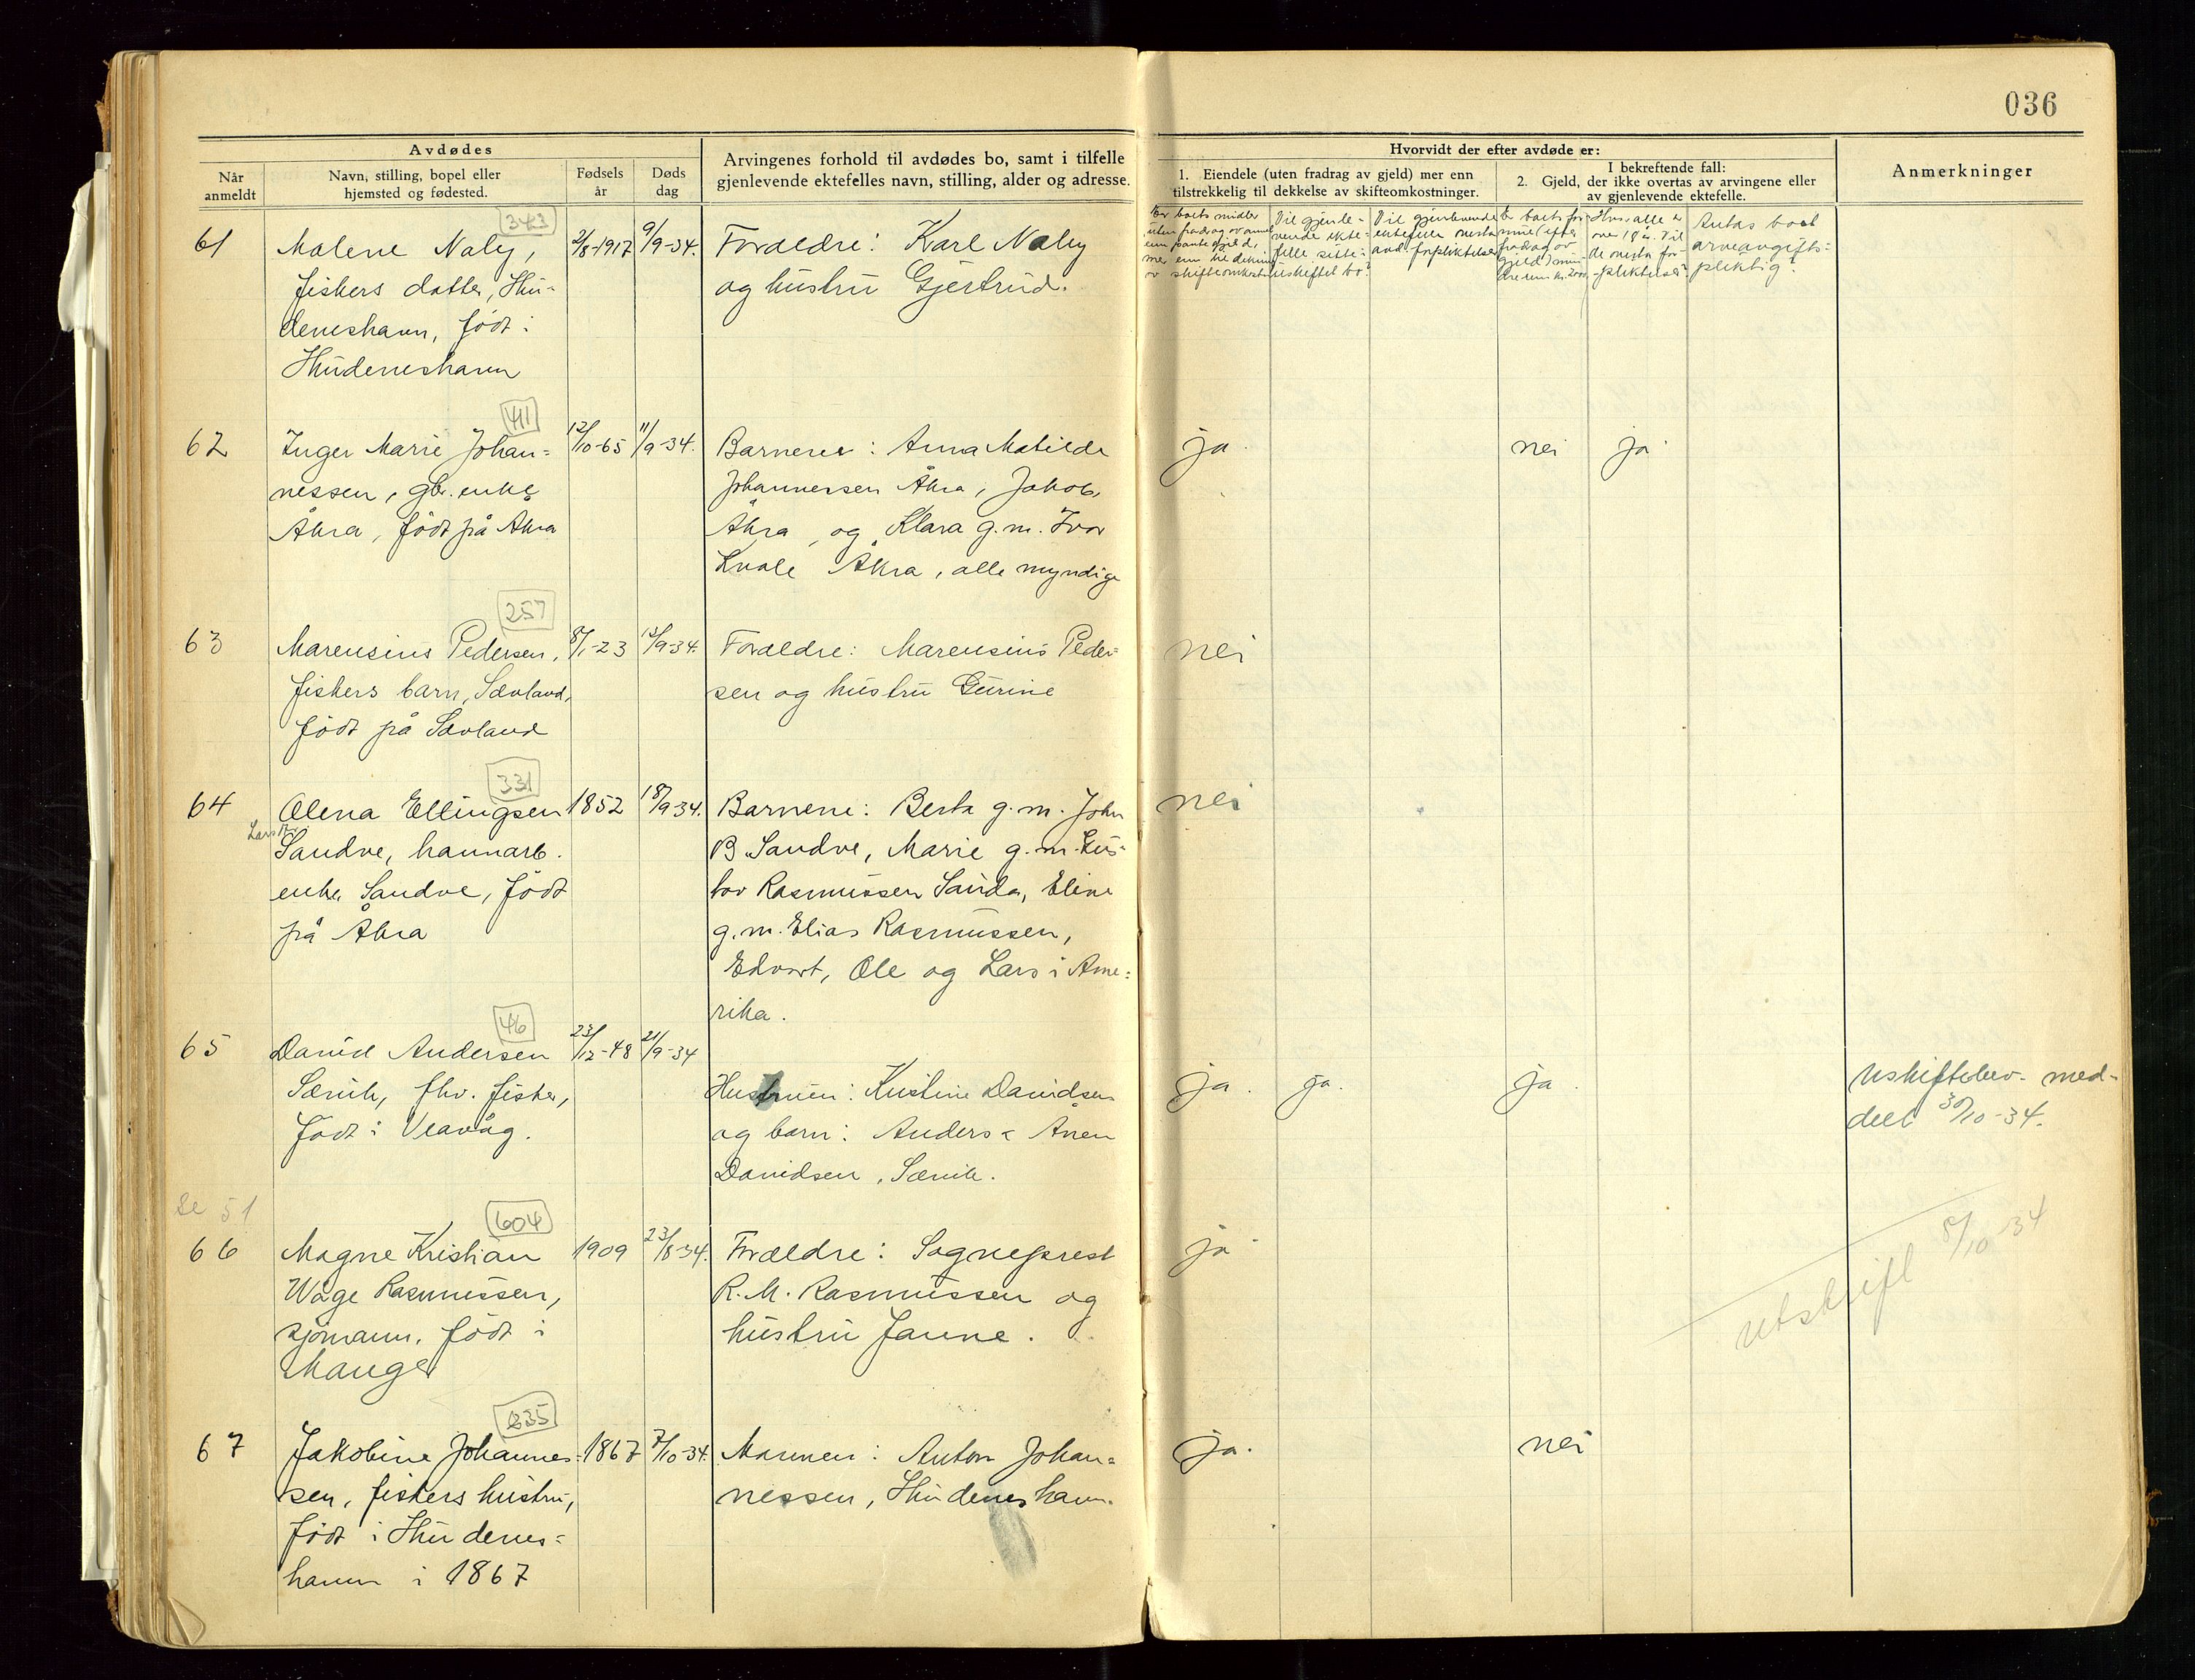 036
Avdødes
Når
anmeldt
Navn, stilling, bopel eller
hjemsted og fødested.
Fødsels
år
Døds
dag
Arvingenes forhold til avdødes bo, samt i tilfelle
gjenlevende ektefelles navn, stilling, alder og adresse.
Hvorvidt der efter avdøde er:
1. Eiendele (uten fradrag av gjeld) mer enn
tilstrekkelig til dekkelse av skifteomkostninger.
I bekreftende fall:
2. Gjeld, der ikke overtas av arvingene eller
av gjenlevende ektefelle.
Anmerkninger
Er boets midler
uten fradrag av annen
enn pantegjeld,
mer enn til dekning
av skifteomkostn
Vil gjenle-
vende ekte-
felle sitte i
uskiftet bo?
Vil gjenlevende
ektefelle overta
avd. forpliktelser
Er boets for
mue (efter
fradrag av
gjeld) min-
dre enn kr. 200
Hvis alle er
over 18 år. Vil
de overta for-
pliktelser
Antas boet
arveavgifts-
pliktig?
343
61 Malene Naley, 2/8-1917 9/9-34. Foreldre: Karl Naley
fiskers datter, Sku- og hustru Gjertrud.
deneshavn, født i
Skudeneshavn
411
62 Inger Marie Johan= 12/10-65 11/9-34. Barnene: Anna Matilde ja. nei ja
nessen, gbr. enke Johannessen Åkra, Jakob
Åkra, født på Åkra Åkra, og Klara g.m. Ivar
Kvale Åkra, alle myndige
257
63 Marensius Pedersen, 8/1-23 13/9-34. Foreldre: Marensius Peder- nei
fiskers barn, Sævland, sen og hustru Gurine
født på Sævland
331
64 Olena Ellingsen 1852 18/9-34. Barnene: Berta g.m. John nei
Sandve, havnarb. B. Sandve, Marie g.m. Gus-
enke Sandve, født tav Rasmussen Sanda, Eline
på Åkra g.m. Elias Rasmussen,
Edvart, Ole og Lars i Ame=
rika.
46
65 David Andersen 23/12-48 21/9-34
Sævik, fhv. fisker, Hustruen: Kristine Davidsen ja. ja. ja. Uskiftebev. med-
født i Veavåg. og barn: Anders & Anen delt 30/10-34.
Davidsen, Sævik.
Se 51
604
66 Magne Kristian 1909 23/8-34. Foreldre: Sogneprest ja
Våge Rasmussen, R. M. Rasmussen og
sjømann, født i hustru Janne.
Manger
utskrift 8/10-34
835
67 Jakobine Johannes= 1867 7/10-34. Mannen: Anton Johan= ja. nei
sen, fiskers hustru, nessen, Skudeneshavn.
født i Skudenes=
havn i 1867